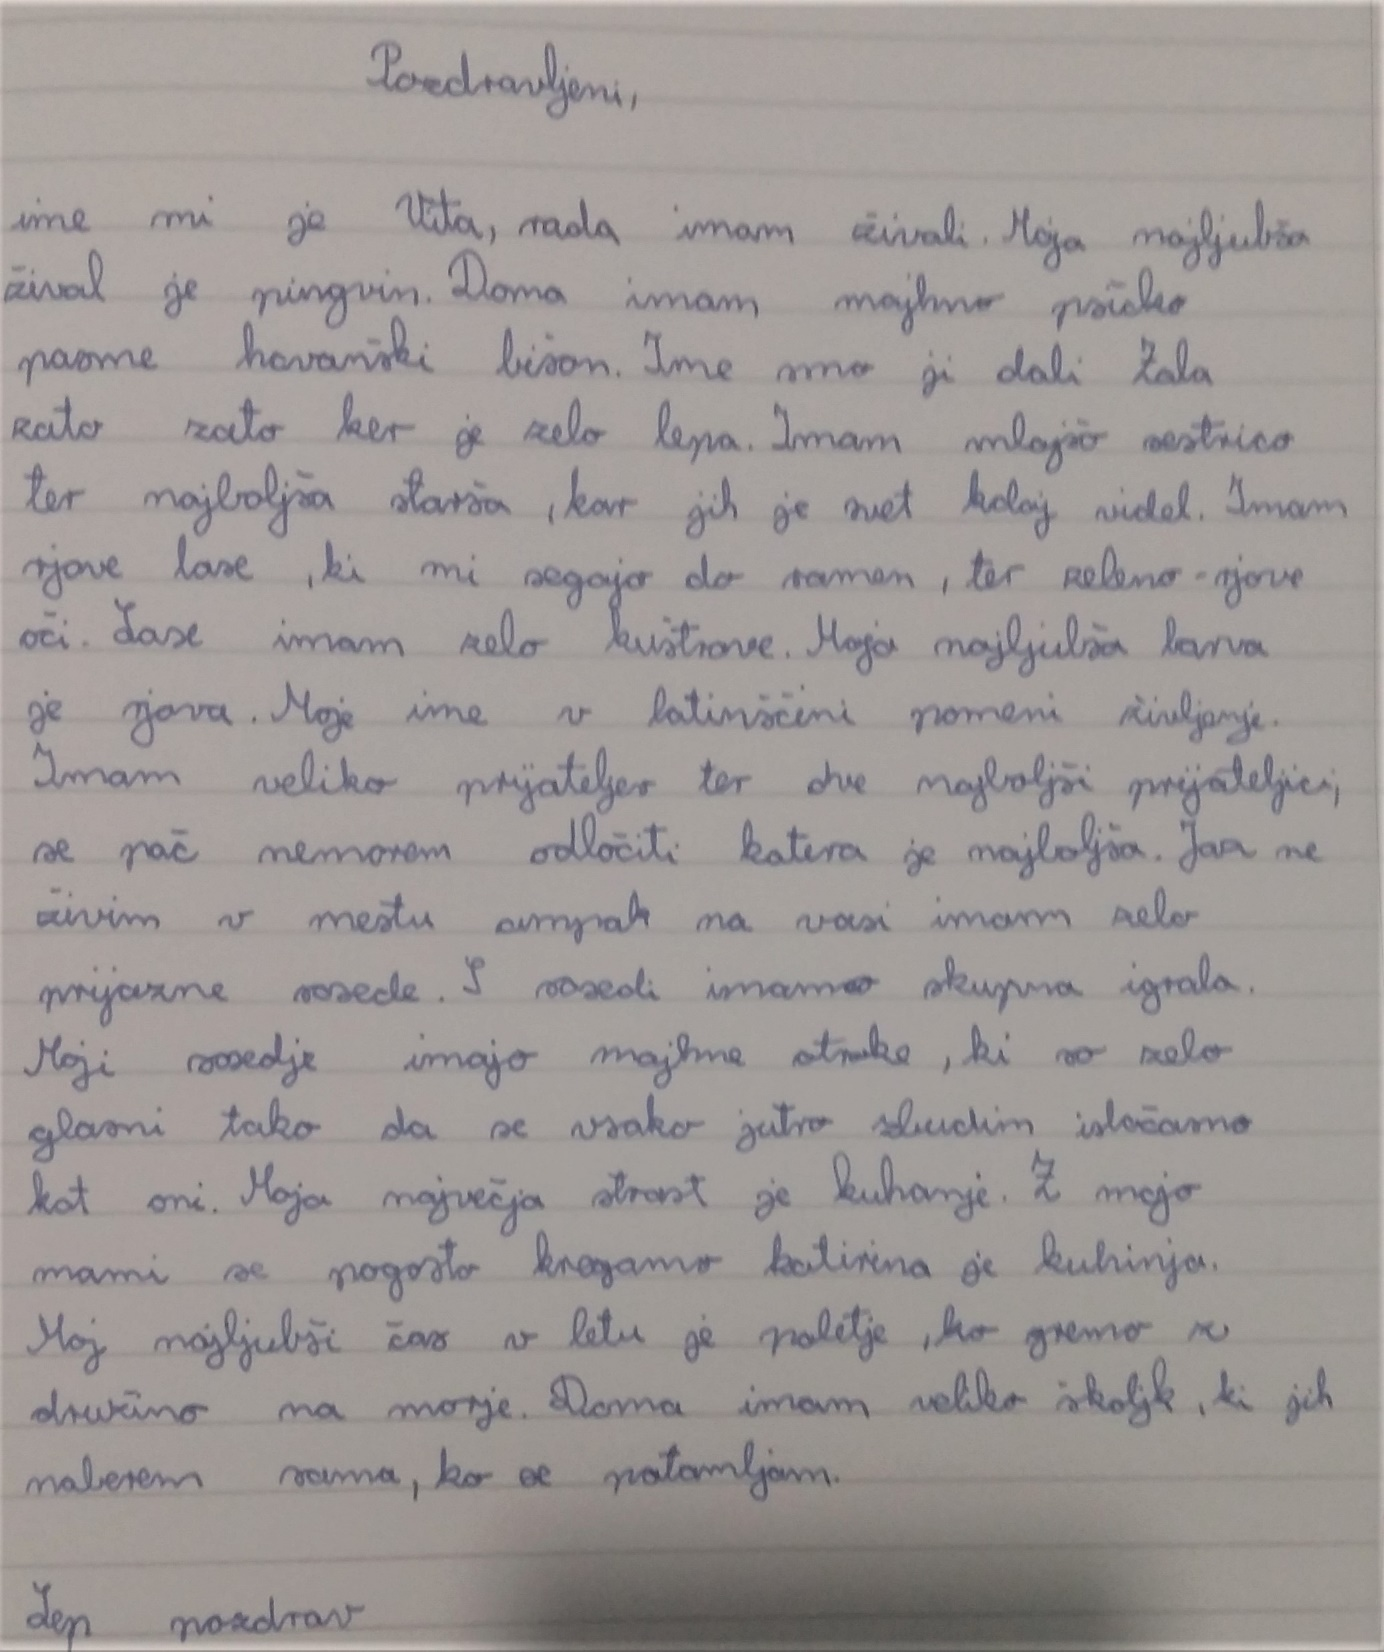 Pozdravljeni,
ime mi je Vita, rada imam živali. Moja najljubša
žival je pingvin. Doma imam majhno psičko
pasme havanski bišon. Ime smo ji dali Zala
zato zato ker je zelo lepa. Imam mlajšo sestrico
ter najboljša starša ,kar jih je svet kdaj videl. Imam
rjave lase ,ki mi segajo do ramen, ter zeleno-rjave
oči. Lase imam zelo kuštrave. Moja najljubša barva
je rjava. Moje ime v latinščini pomeni življenje.
Imam veliko prijateljev ter dve najboljši prijateljici,
se pač nemorem odločiti katera je najboljša. Jaz ne
živim v mestu ampak na vasi imam zelo
prijazne sosede. S sosedi imamo skupna igrala.
Moji sosedje imajo majhne otroke ,ki so zelo
glasni tako da se vsako jutro zbudim istočasno
kot oni. Moja največja strast je kuhanje. Z mojo
mami se pogosto kregamo katirina je kuhinja.
Moj najljubši čas v letu je poletje ,ko gremo z
družino na morje. Doma imam veliko školjk ,ki jih
naberem sama, ko se potamljam.
Lep pozdrav